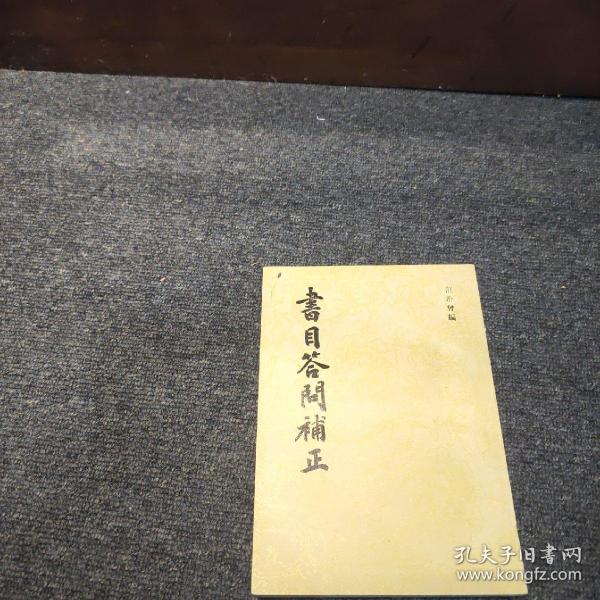 書目答問補正
范希曾編
孔夫子旧書网
www.kongfz.com